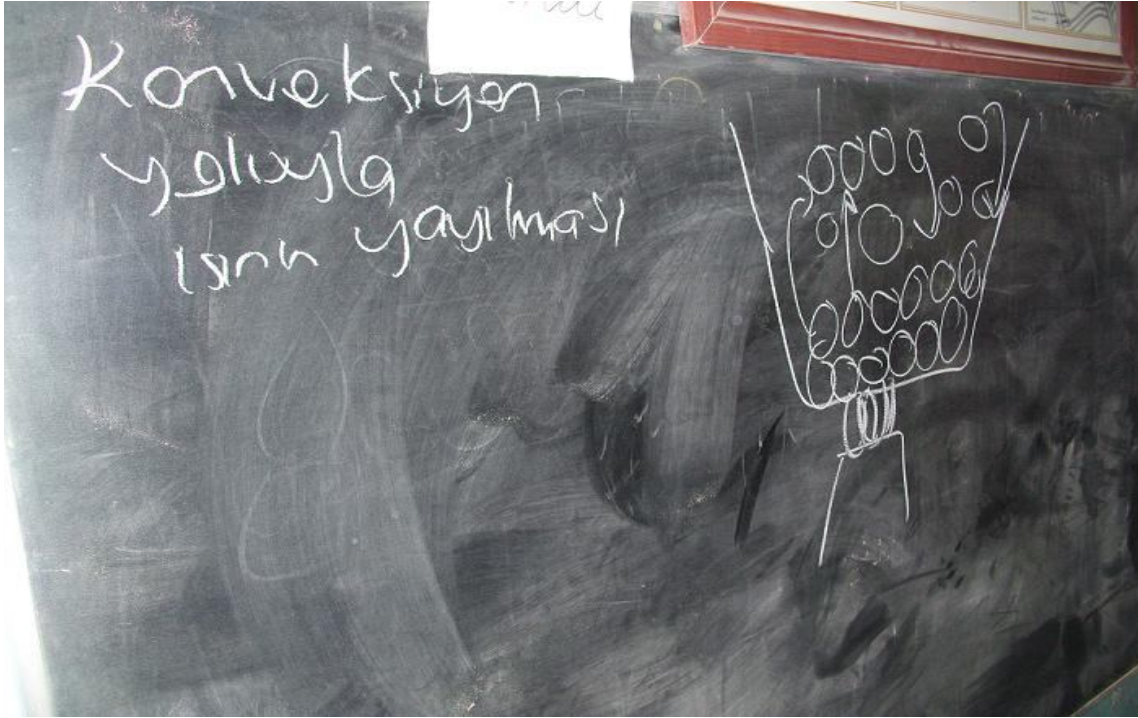 Konveksiyon
yoluyla
ısının yayılması